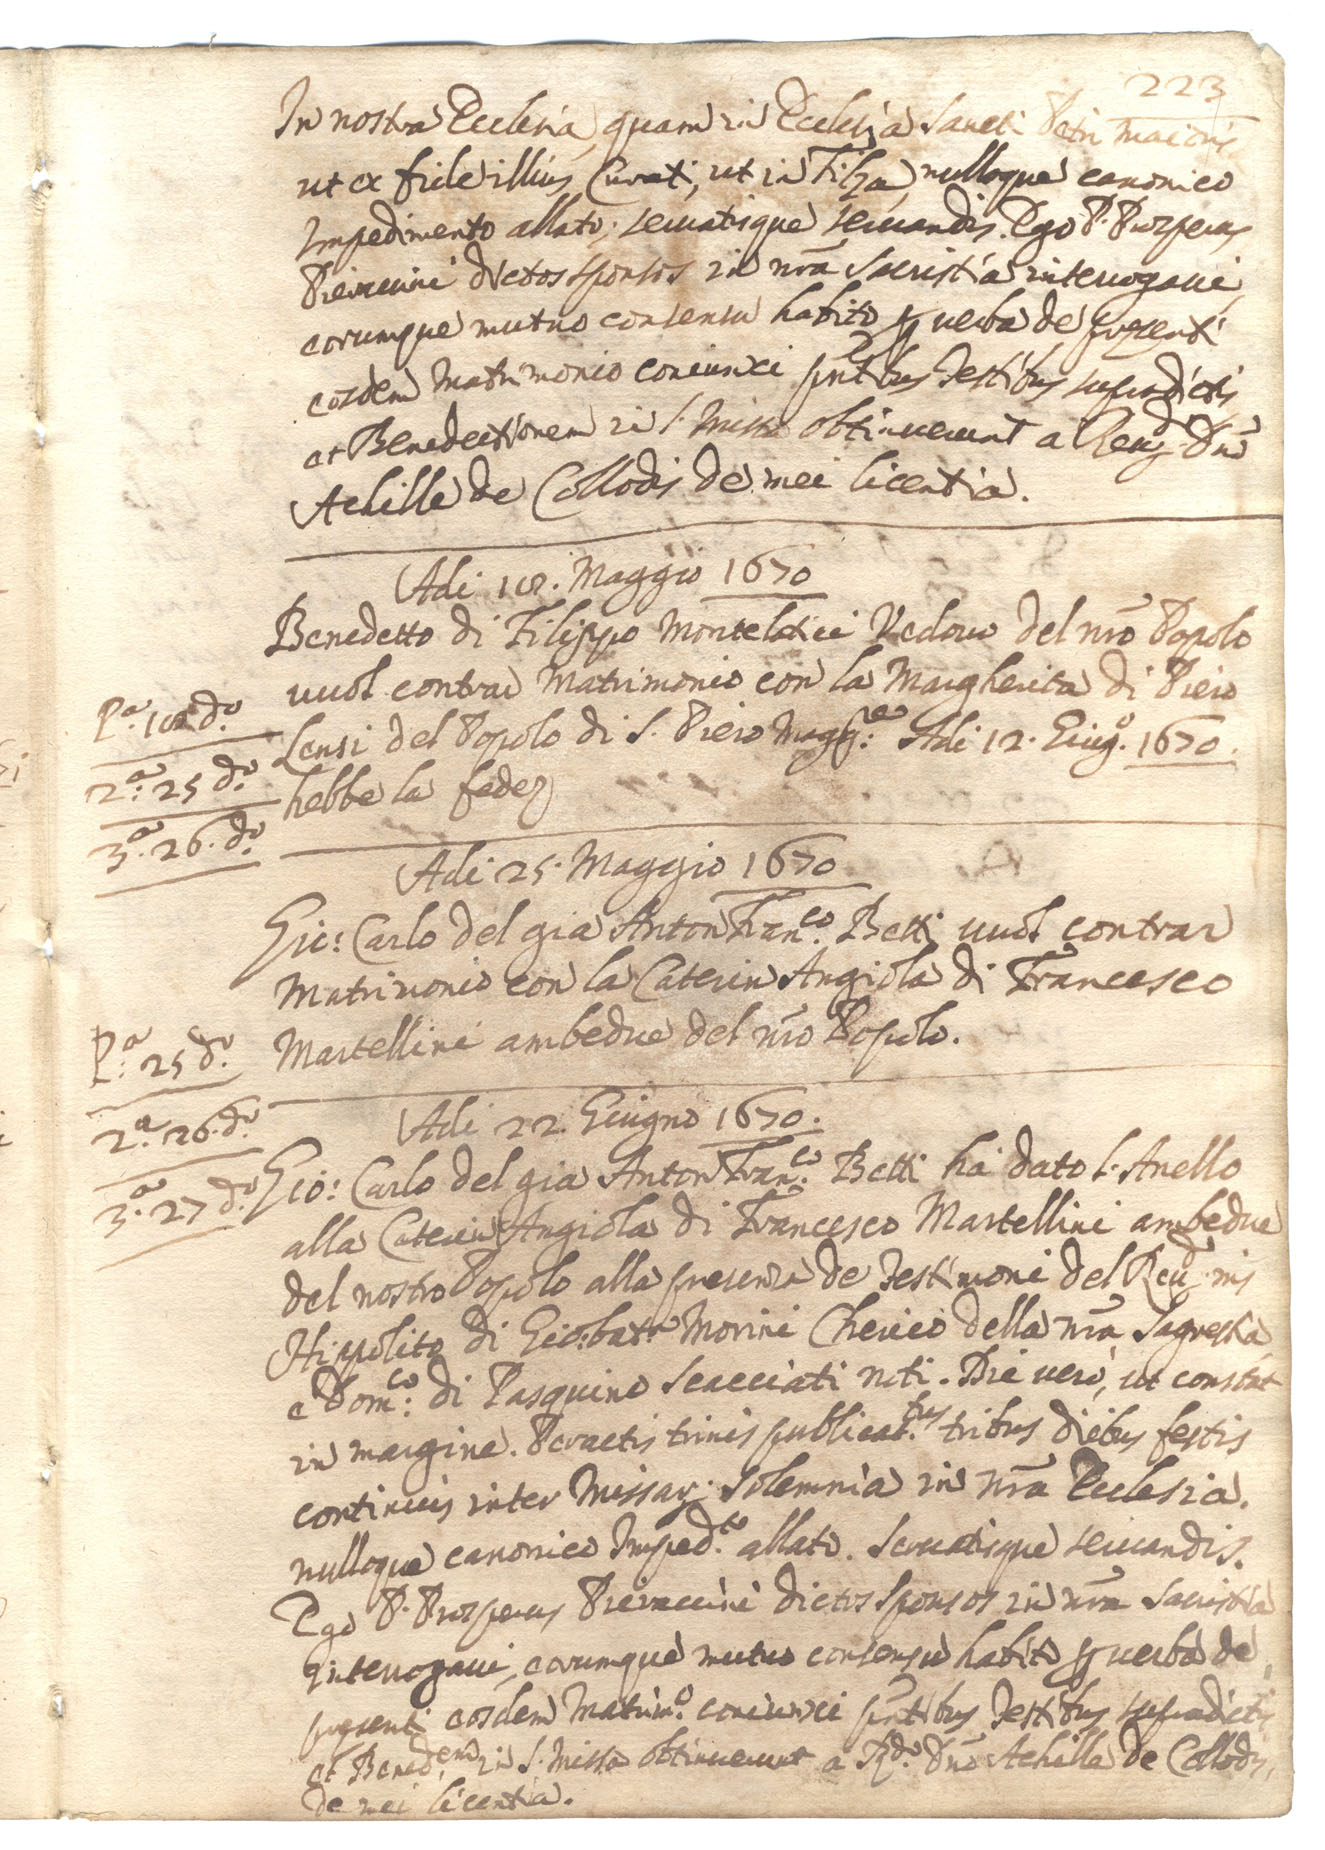 223
In nostra Ecclesia, quam in Ecclesia Sancti Petri maioris
ut ex fide illius Curati, ut in Filza, nulloque canonico
Impedimento allato; servatisque servandis. Ego P. Prosperus
Pieraccini dictos sponsos in nrã Sacristia interrogavi,
eorumque mutuo consensu habito p verba de presenti
eosdem Matrimonio coniunxi pntibus Testibus supradictis,
et Benedectionem in S. Missa obtinuerunt a Reu.d Dnõ
Achille de Collodis de mei licentia.
Adi 18. Maggio 1670
Benedetto di Filippo Montelatici Vedovo del nrõ Popolo
vuol contrar Matrimonio con la Margherita di Piero
P.a 18 d.o
Lensi del Popolo di S. Piero Magg.re Adi 12. Giug.o 1670.
2.a 25 d.o
hebbe la fede
3.a 26. d.o
Adi 25. Maggio 1670
Gio: Carlo del gia Anton Fran.co Betti vuol contrar
Matrimonio con la Caterin Angiola di Francesco
P.a 25 d.o
Martellini ambedue del nrõ Popolo.
2.a 26. d.o
Adi 22. Giugno 1670.
3.a 27 d.o
Gio: Carlo del gia Anton Fran.co Betti ha dato l'Anello
alla Caterin Angiola di Francesco Martellini ambedue
del nostro Popolo alla presenza de Testimoni del Reu.d
Hippolito di Gio:batt.a Morini Cherico della nrã Sagrestia
e Dom.co di Pasquino Scacciati noti. Die vero, ut constat
in margine. Peractis trinis publicat.bus tribus diebus festis
continuis inter Missar. Solemnia in nrã Ecclesia.
nulloque canonico Imped.to allato. Servatisque servandis.
Ego P. Prosperus Pieraccini dictos sponsos in nrã Sacristia
interrogavi, eorumque mutuo consensu habito p verba de
presenti eosdem Matrim.o coniunxi pntibus Testibus supradictis
et Bened.em in S. Missa obtinuerunt a R.do Dnõ Achille de Collodis,
de mei licentia.